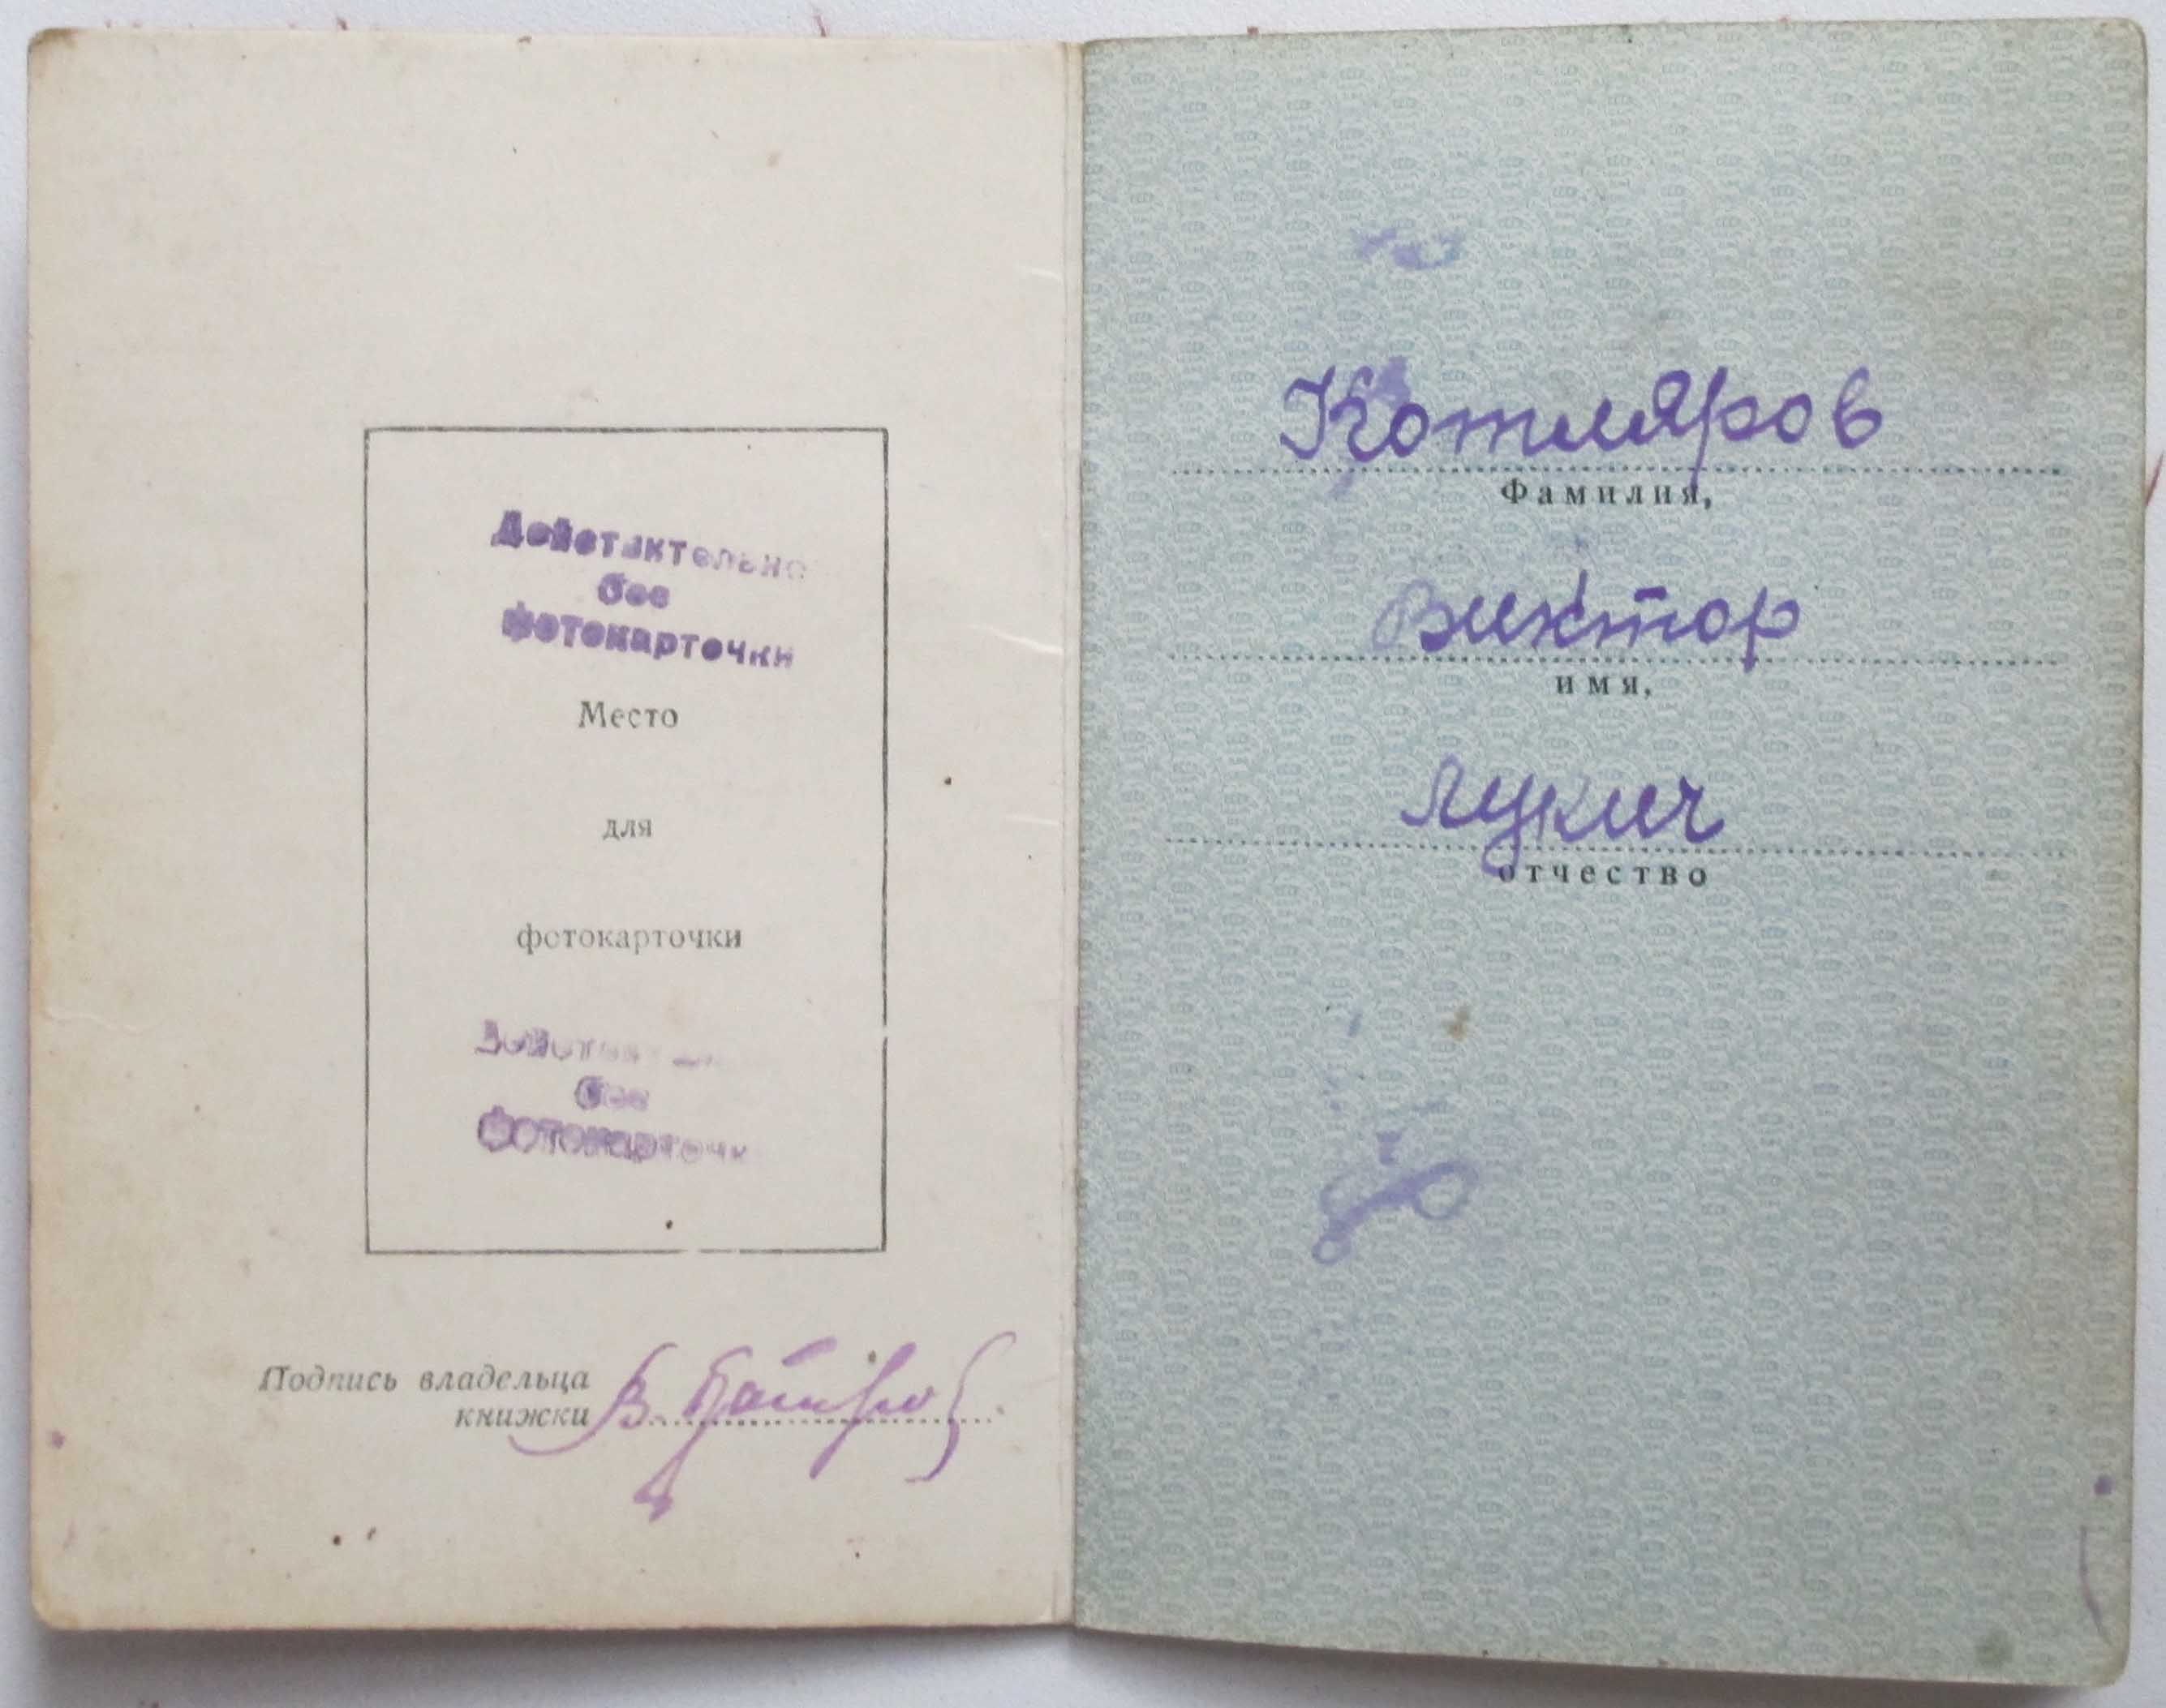 Действительно
без
фотокарточки
Место
для
фотокарточки
без
фотокарточки
Подпись владельца
книжки
Котляров
Фамилия,
Виктор
имя,
Лукич
отчество